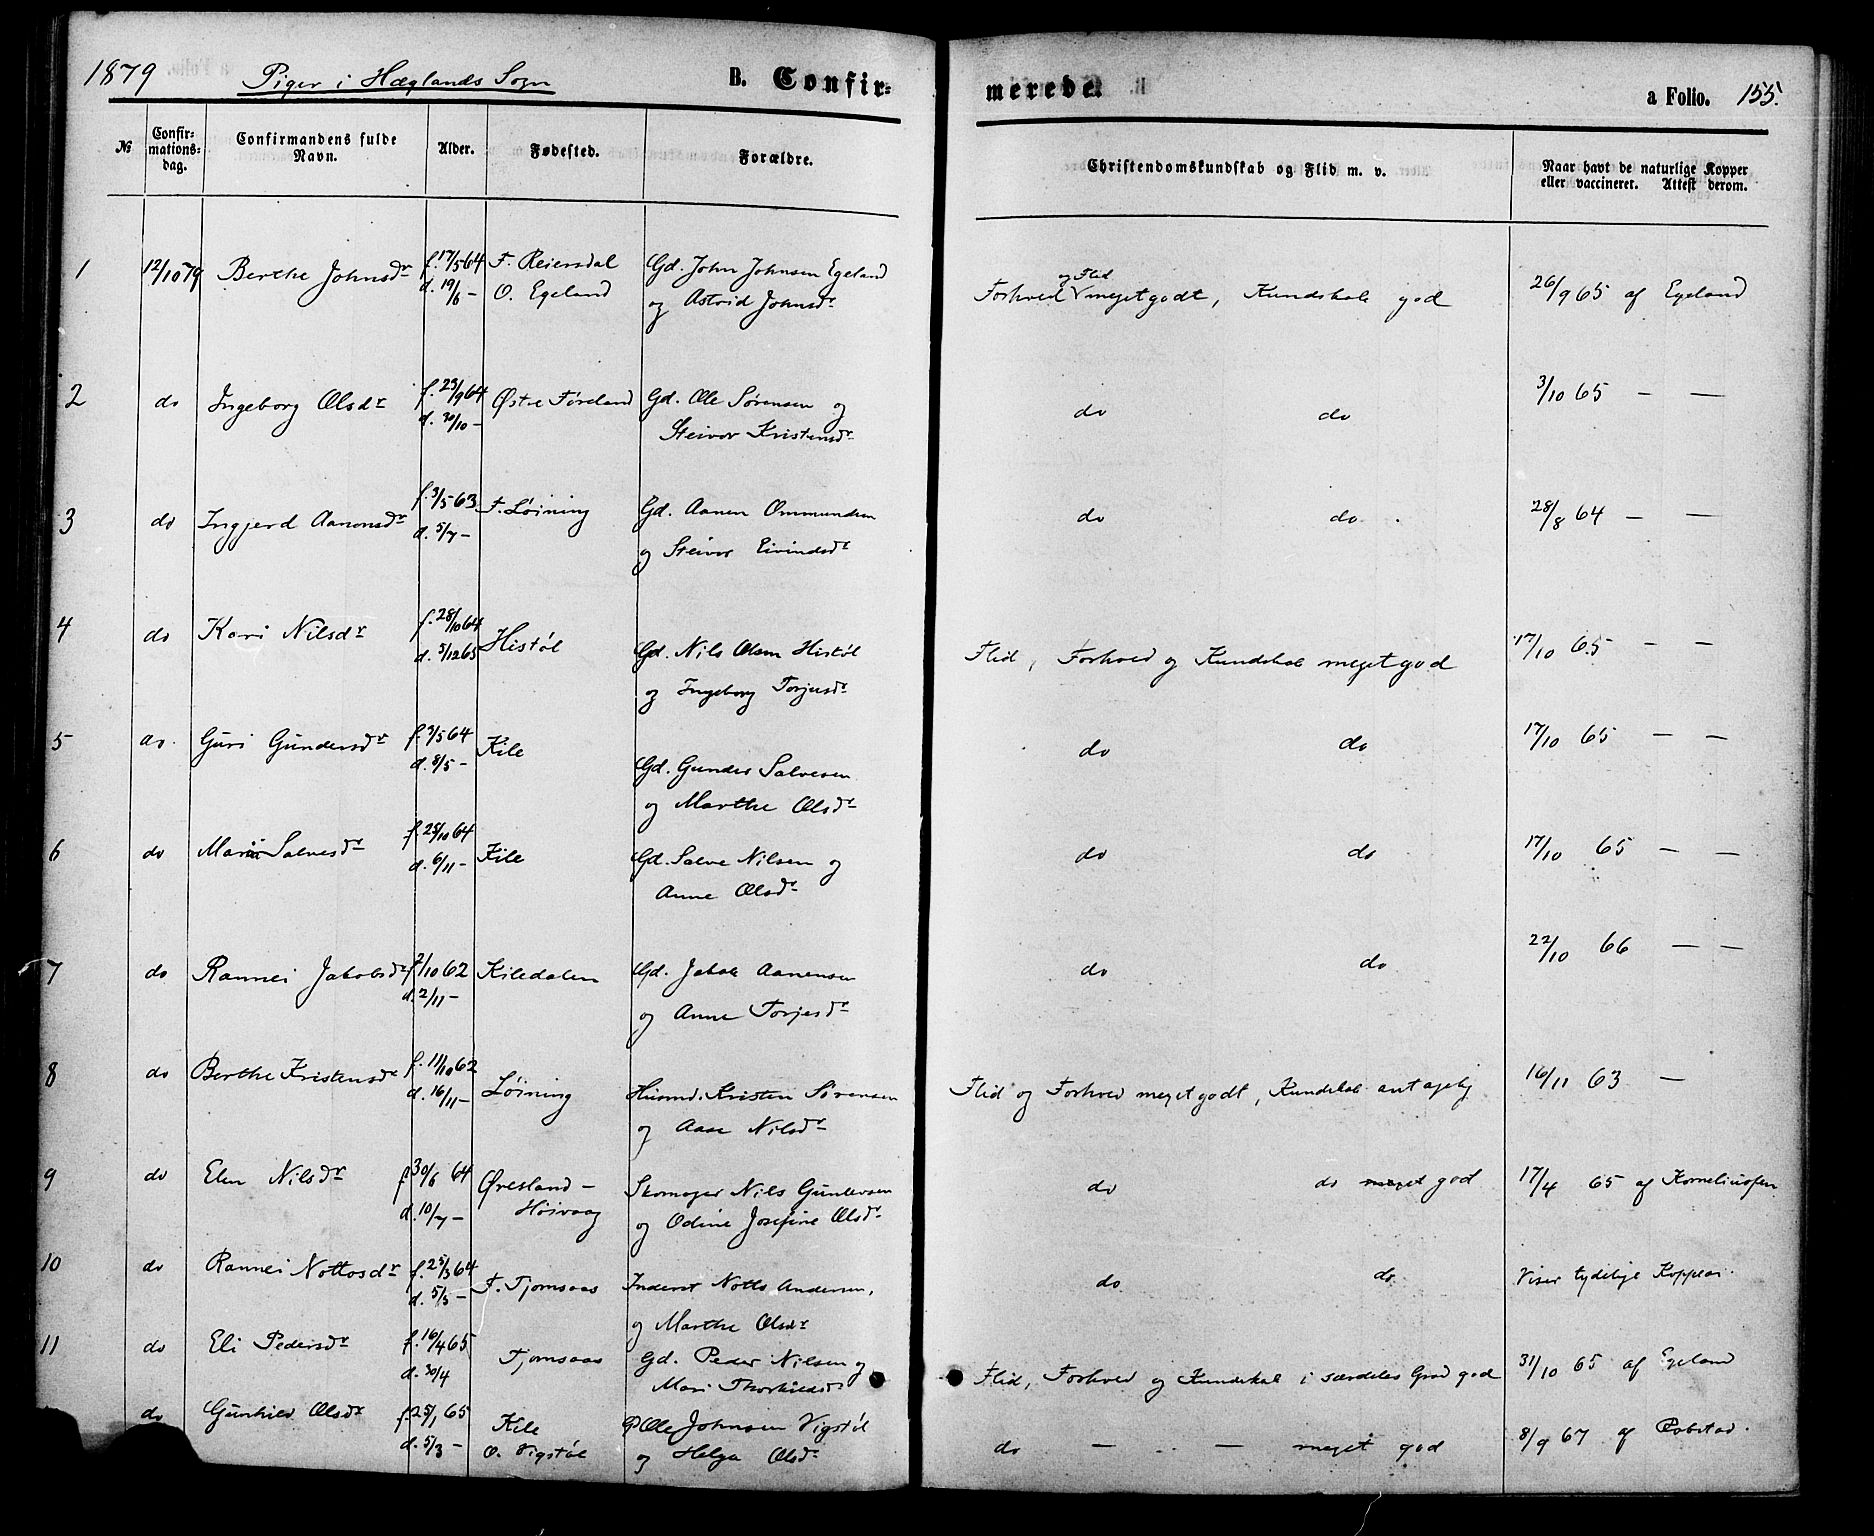 1879 Piger i Hæglands Sogn B. Confir- merede. a Folio. 155.
№ Confir-mations-dag. Confirmandens fulde Navn. Alder. Fødested. Forældre. Christendomskundskab og Flid m. v. Naar havt de naturlige Kopper eller vaccineret. Attest derom.
1 12/10 79 Berthe Johnsdr f. 17/5 64 F. Reiersdal Gd. John Johnsen Egeland og Flid
d. 19/6 – O. Egeland og Astrid Johnsdr Forhold meget godt, Kundskab god 26/9 65 af Egeland
2 do Ingeborg Olsdr f. 23/9 64 Østre Føreland Gd. Ole Sørensen og do do 3/10 65 — —
d. 30/10 – Steivor Kristensdr
3 do Ingjerd Aanonsdr f. 3/5 63 F. Løining Gd. Aanen Ommundsen do do 28/8 64 — —
d. 5/7 – og Steivor Eivindsdr
4 do Kari Nilsdr f. 28/10 64 Histøl Gd. Nils Olsen Histøl Flid, Forhold og Kundskab meget god 17/10 65 — —
d. 3/12 65 og Ingeborg Torjusdr
5 do. Guri Gundersdr f. 3/5 64 Kile Gd. Gunder Salvesen do do 17/10 65 — —
d. 8/5 – og Marthe Olsdr
6 do Maria Salvesdr f. 28/10 64 Kile Gd. Salve Nilsen og do do 17/10 65 — —
d. 6/11 – Anne Olsdr
7 do Rannei Jakobsdr f. 2/10 62 Kiledalen Gd. Jakob Aanensen do do 22/10 66 — —
d. 2/11 – og Anne Torjesdr
8 do Berthe Kristensdr f. 11/10 62 Løining Husmd. Kristen Sørensen Flid og Forhold meget godt, Kundskab antagelig 16/11 63 —
d. 16/11 – og Aase Nilsdr
9 do Elen Nilsdr f. 30/6 64 Øresland – Skomager Nils Guntersen do do meget god 17/4 65 af Korneliussen
d. 10/7 – Høivaag og Odine Josefine Olsdr
10 do Rannei Nottosdr f. 25/3 64 F. Tjomsaas Inderst Notto Andersen, do do Viser tydelige Kopear.
d. 5/5 – og Marthe Olsdr
11 do Eli Pedersdr f. 16/4 65 Tjomsaas Gd. Peder Nilsen og Flid, Forhold og Kundskab i særdeles Grad god 31/10 65 af Egeland
d. 30/4 Mari Thorkildsdr
do Gunhild Olsdr f. 25/1 65 Kile Ole Johnsen Vigstøl do — „ — meget god 8/9 67 af Robstad.
d. 5/3 – O. Vigstøl og Helga Olsdr